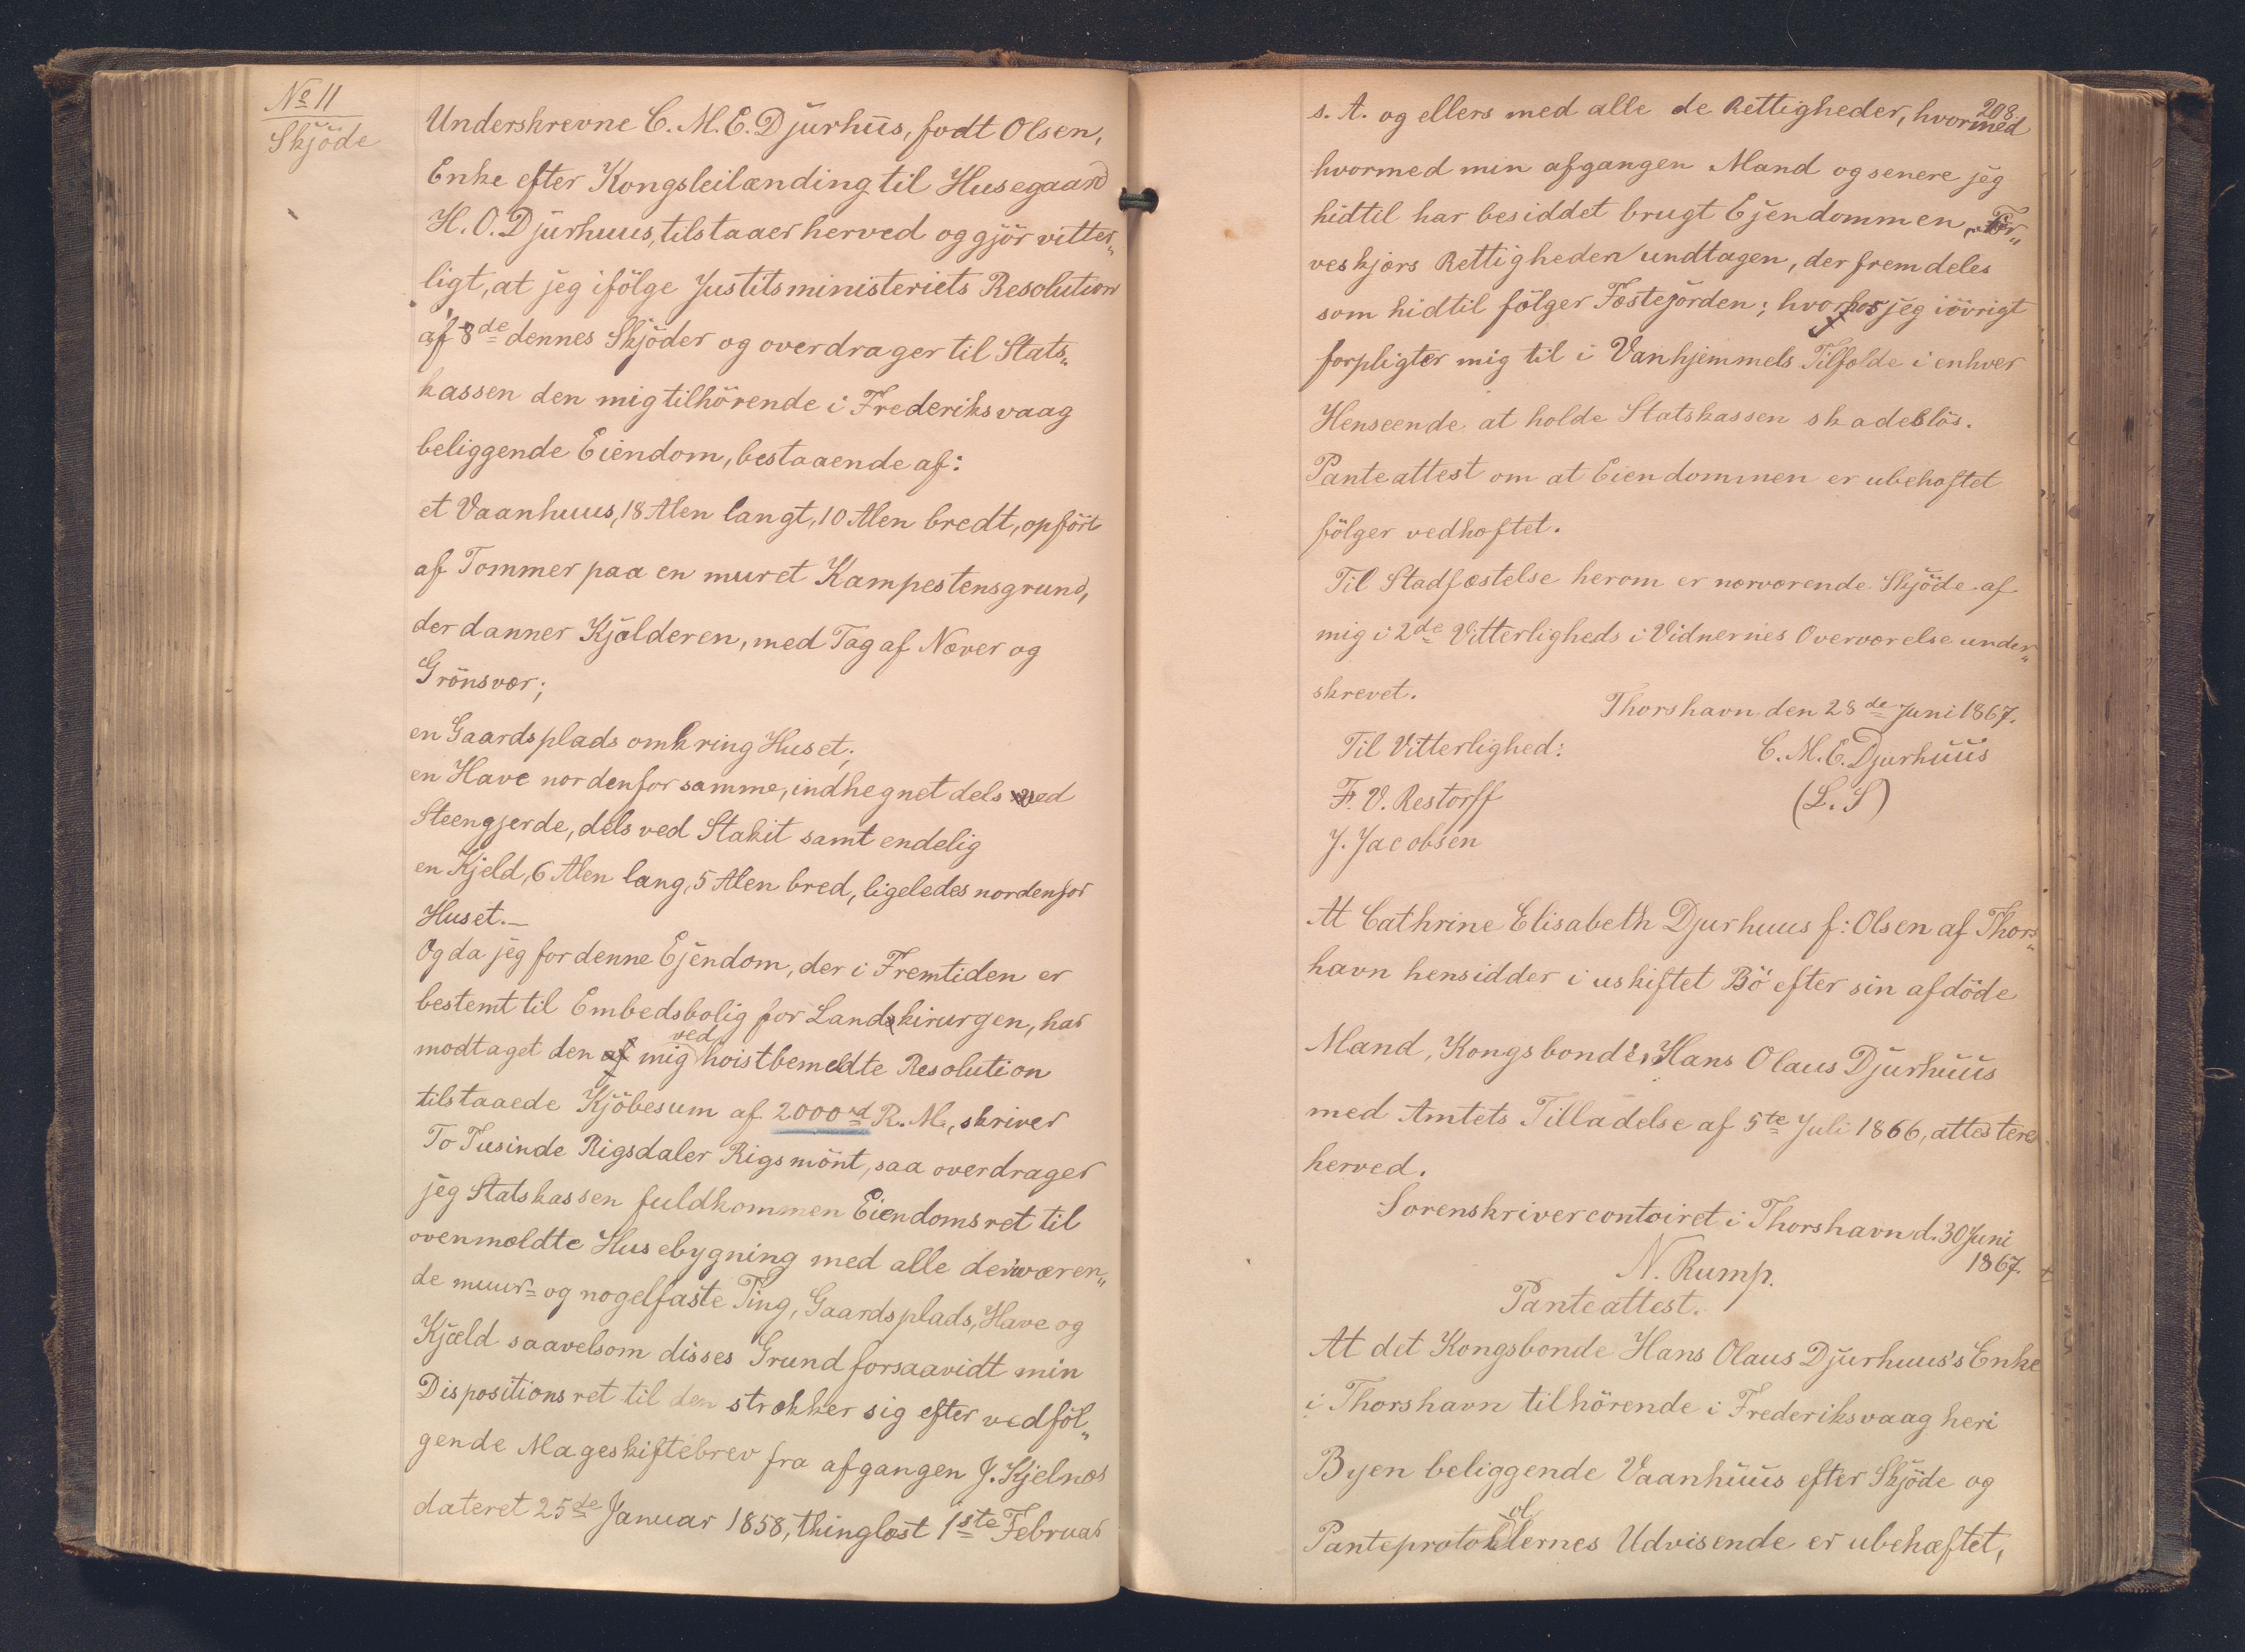 No 11
Skjöde
Underskrevne C. M. E. Djurhüs, fodt Olsen,
Enke efter Kongsleilænding til Husegaard
H. O. Djurhuus, tilstaaer herved og gjör vitter„
ligt, at jeg ifölge Justitsministeriets Resolution
af 8de dennes Skjöder og overdrager til Stats„
kassen den mig tilhörende i Frederiksvaag
beliggende Eiendom, bestaaende af:
et Vaanhuus, 18 Alen langt, 10 Alen bredt, opfört
af Tommer paa en muret Kampestensgrund,
der danner Kjælderen, med Tag af Næver og
Grönsvær;
en Gaardsplads omkring Huset;
en Have nordenfor samme, indhegnet dels ved
Steengjerde, dels ved Stakit samt endelig
en Kjeld, 6 Alen lang, 5 Alen bred, ligeledes nordenfor
Huset.—
Og da jeg for denne Ejendom, der i Fremtiden er
bestemt til Embedsbolig for Landskirurgen, har
modtaget den af mig ved hoistbemeldte Resolution
tilstaaede Kjöbesum af 2000 rd R. M., skriver
To Tusinde Rigsdaler Rigsmönt, saa overdrager
jeg Statskassen fuldkommen Eiendomsret til
ovenmældte Husebygning med alle deiværen„
de muur= og nogelfaste Ting, Gaardsplads, Have og
Kjæld saavelsom disses Grund forsaavidt min
Dispositionsret til den strækker sig efter vedföl„
gende Mageskiftebrev fra afgangen J. Kjelnæs
dateret 25de Januar 1858, thinglæst 1ste Februar
208.
s. A. og ellers med alle de Rettigheder, hvormed
hvormed min afgangen Mand og senere jeg
hidtil har besiddet brugt Ejendommen, Tör„
veskjærs Rettigheden undtagen, der fremdeles
som hidtil fölger Fæstejorden; hvorhos jeg iövrigt
forpligter mig til i Vanhjemmels Tilfælde i enhver
Henseende at holde Statskassen skadeslös.
Panteattest om at Eiendommen er ubehæftet
fölger vedhæftet.
Til Stadfæstelse herom er nærværende Skjöde af
mig i 2de Vitterligheds i Vidnernes Overværelse under„
skrevet.
Thorshavn den 28de Juni 1867.
Til Vitterlighed:
C. M. E. Djurhüüs
F. V. Restorff
(L. S)
J. Jacobsen
At Cathrine Elisabeth Djurhuus f: Olsen af Thors„
havn hensidder i uskiftet Bö efter sin afdöde
Mand, Kongsbonde Hans Olaus Djurhüüs
med Amtets Tilladelse af 5te Juli 1866, attesteres
herved.
Sorenskrivercontoiret i Thorshavn d. 30 Juni
1867.
N. Rump.
Panteattest.
At det Kongsbonde Hans Olaus Djurhuus's Enke
i Thorshavn tilhörende i Frederiksvaag heri
Byen beliggende Vaanhüüs efter Skjöde og
Panteprotokollernes Udvisende er ubehæftet,